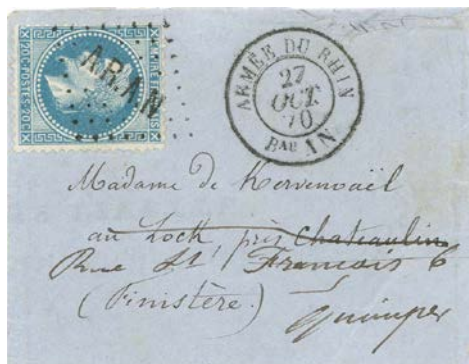 20C·POSTES·20C
A.R.A.N
ARMÉE DU RHIN
27
OCT.
70
Bau AN
Madame de Kervenoaël
au Lock, près Chateaulin
Rue St François 6
(Finistère.)
Quimper